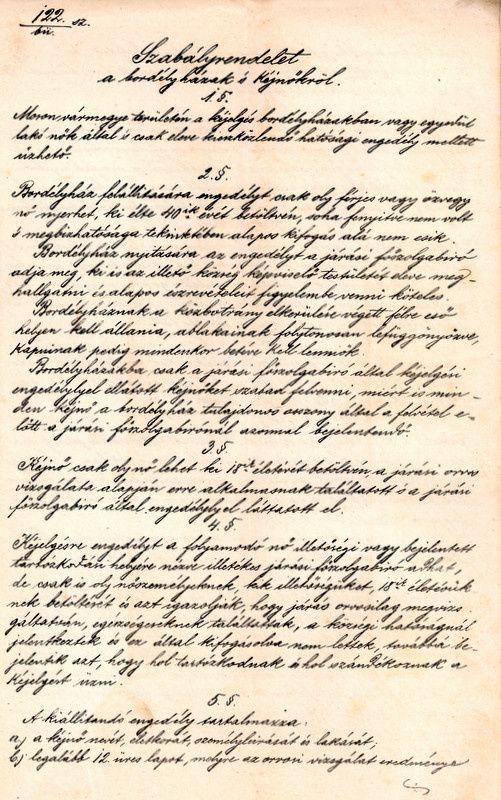 122. sz.
bü.
Szabályrendelet
a bordélyházak s kéjnőkről.
1. §.
Moson vármegye területén a kéjelgés bordélyházakban vagy egyedül
lakó nők által is csak eleve kieszközlendő hatósági engedély mellett
űzhető.
2. §.
Bordélyház felállítására engedélyt csak oly férjes vagy özvegy
nő nyerhet, ki élte 40ik évét betöltvén, soha fenyitve nem volt
s megbizhatósága tekintetében alapos kifogás alá nem esik.
Bordélyház nyitására az engedélyt a járási főszolgabiró
adja meg, ki is az illető község képviselő testületét eleve meg-
hallgatni és alapos észrevételeit figyelembe venni köteles.
Bordélyháznak a közbotrány elkerülése végett félre eső
helyen kell állania, ablakainak folytonosan lefüggönyözve,
kapuinak pedig mindenkor betéve kell lenniök.
Bordélyházakba csak a járási főszolgabiró által kéjelgési
engedélylyel ellátott kéjnőket szabad felvenni, miért is min-
den kéjnő a bordélyház tulajdonos asszony által a felvétel e-
lőtt a járási főszolgabirónál azonnal bejelentendő.
3. §.
Kéjnő csak oly nő lehet ki 18ik életévét betöltvén a járási orvos
vizsgálata alapján erre alkalmasnak találtatott s a járási
főszolgabiró által engedélylyel láttatott el.
4. §.
Kéjelgésre engedélyt a folyamodó nő illetőségi vagy bejelentett
tartózkodási helyére nézve illetékes járási főszolgabiró adhat,
de csak is oly nőszemélyeknek, kik illetőségüket, 18ik életévük
nek betöltését és azt igazolják, hogy járás orvosilag megvizs
gáltatván, egészségeseknek találtattak, a községi hatóságnál
jelentkeztek és ez által kifogásolva nem lettek, továbbá be-
jelentik azt, hogy hol tartózkodnak és hol szándékoznak a
kéjelgést űzni.
5. §.
A kiállitandó engedély tartalmazza:
a) a kéjnő nevét, életkorát, személyleirását és lakását;
b) legalább 12. üres lapot, melyre az orvosi vizsgálat eredménye